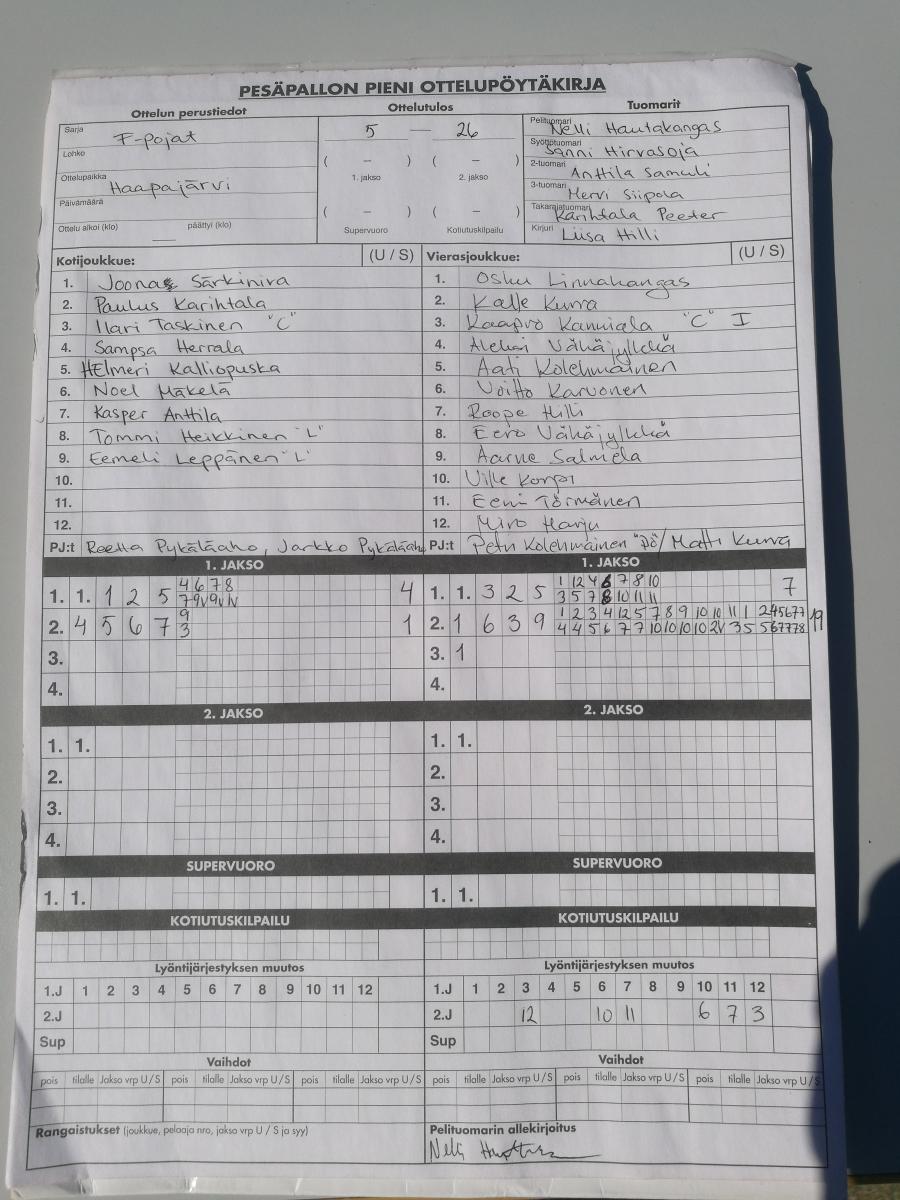 PESÄPALLON PIENI OTTELUPÖYTÄKIRJA
Ottelun perustiedot
Sarja F-pojat
Lohko
Ottelupaikka Haapajärvi
Päivämäärä
Ottelu alkoi (klo) päättyi (klo)
Ottelutulos
5 — 26
( – ) ( – )
1. jakso 2. jakso
( – ) ( – )
Supervuoro Kotiutuskilpailu
Tuomarit
Pelituomari Nelli Hautakangas
Syöttötuomari Sanni Hirvasoja
2-tuomari Anttila Samuli
3-tuomari Mervi Siipola
Takarajatuomari Karihtala Peeter
Kirjuri Liisa Hilli
Kotijoukkue: (U / S)
1. Joonas Särkiniva
2. Paulus Karihtala
3. Ilari Taskinen "C"
4. Sampsa Herrala
5. HElmeri Kalliopuska
6. Noel Mäkelä
7. Kasper Anttila
8. Tommi Heikkinen "L"
9. Eemeli Leppänen "L"
10.
11.
12.
PJ:t Reetta Pykäläaho, Jarkko Pykäläaho
Vierasjoukkue: (U / S)
1. Osku Linnakangas
2. Kalle Kurra
3. Kaapro Kanniala "C" I
4. Aleksi Vähäjylkkä
5. Aati Kolehmainen
6. Voitto Karvonen
7. Roope Hilli
8. Eero Vähäjylkkä
9. Aarne Salmela
10. Ville Korpi
11. Eemi Törmänen
12. Miro Harju
PJ:t Petri Kolehmäinen / Matti Kurra
1. JAKSO
1. 1. 1 2 5 4 6 7 8 4
7 9V 9V IV
2. 4 5 6 7 9 1
3
3.
4.
1. JAKSO
1. 1. 3 2 5 1 12 4 6 7 8 10 7
3 5 7 8 10 11 11
2. 1 6 3 9 1 2 3 4 12 5 7 8 9 10 10 11 1 2 4 5 6 7 7 19
4 4 5 6 7 7 10 10 10 10 2V 3 5 5 6 7 7 7 8
3. 1
4.
2. JAKSO
1. 1.
2.
3.
4.
2. JAKSO
1. 1.
2.
3.
4.
SUPERVUORO
1. 1.
SUPERVUORO
1. 1.
KOTIUTUSKILPAILU
KOTIUTUSKILPAILU
Lyöntijärjestyksen muutos
1.J 1 2 3 4 5 6 7 8 9 10 11 12
2.J
Sup
Lyöntijärjestyksen muutos
1.J 1 2 3 4 5 6 7 8 9 10 11 12
2.J 12 10 11 6 7 3
Sup
Vaihdot
pois tilalle Jakso vrp U / S pois tilalle Jakso vrp U / S pois tilalle Jakso vrp U / S
Vaihdot
pois tilalle Jakso vrp U / S pois tilalle Jakso vrp U / S pois tilalle Jakso vrp U / S
Rangaistukset (joukkue, pelaaja nro, jakso vrp U / S ja syy)
Pelituomarin allekirjoitus